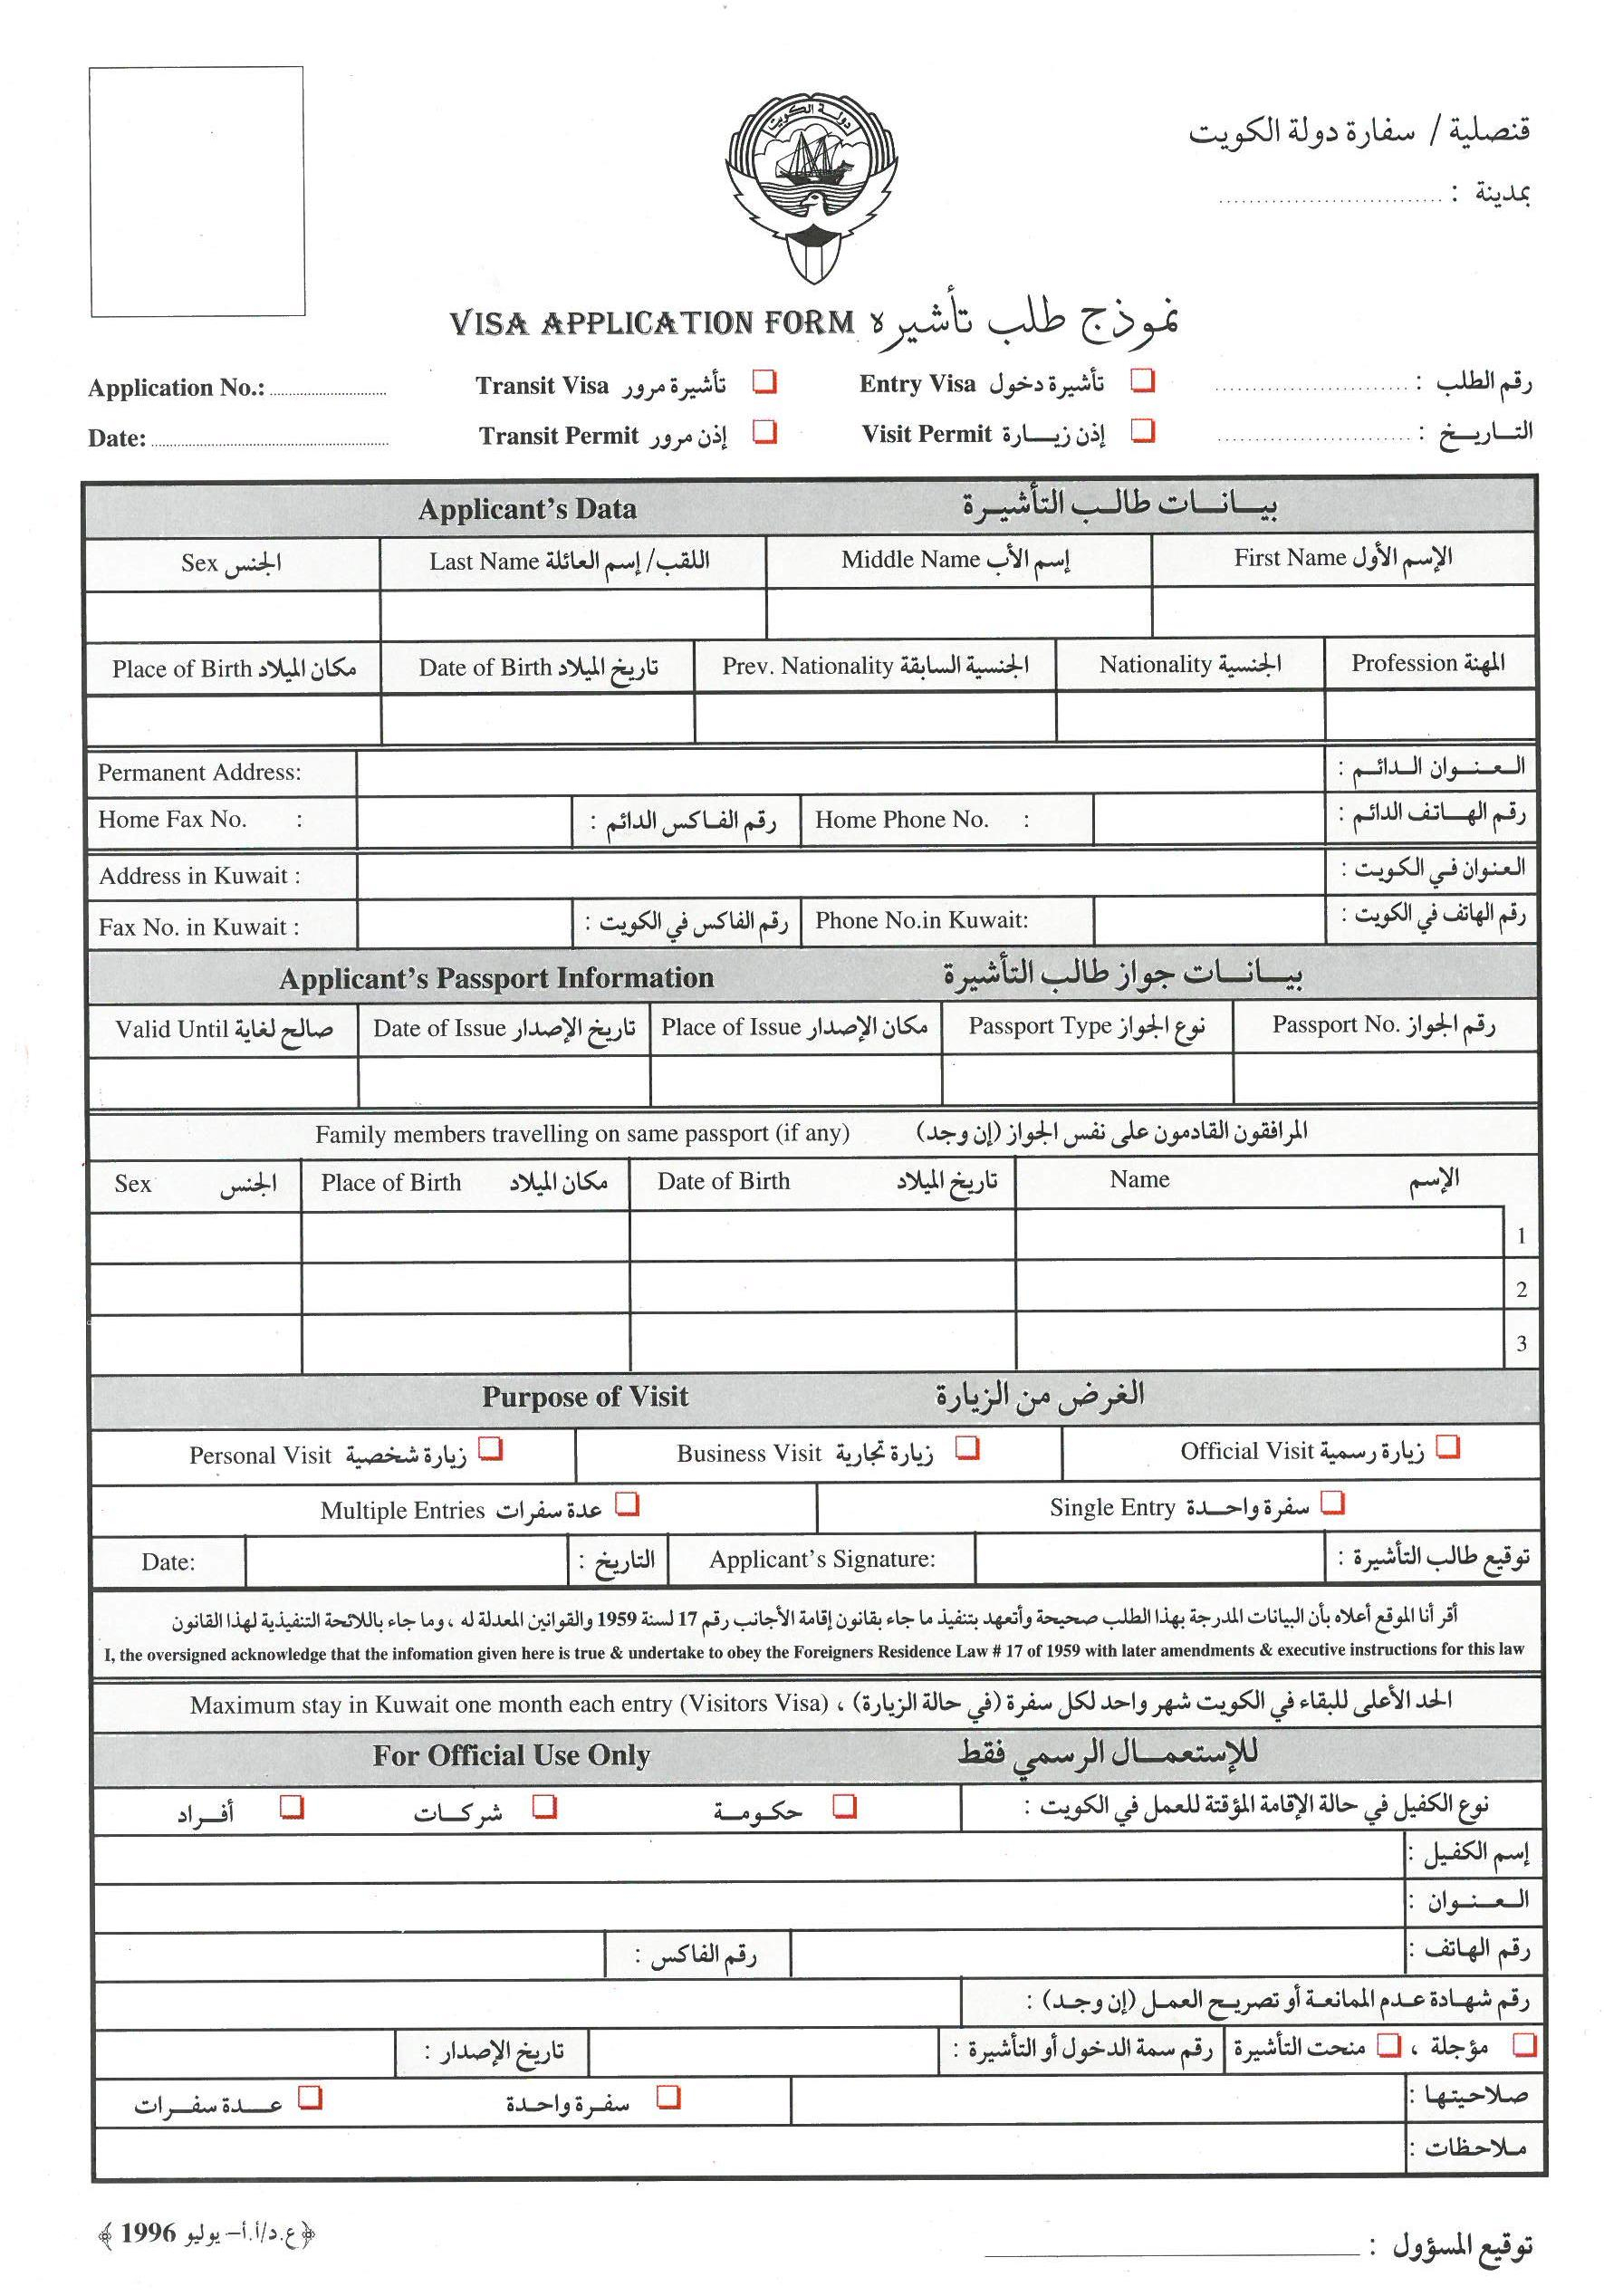 دولة الكويت
قنصلية / سفارة دولة الكويت
بمدينة :
VISA APPLICATION FORM نموذج طلب تأشيره
Application No.: Transit Visa تأشيرة مرور Entry Visa تأشيرة دخول رقم الطلب :
Date: Transit Permit إذن مرور Visit Permit إذن زيـــارة التــاريــخ :
Applicant's Data بيــانــات طالــب التأشيــرة
Sex الجنس Last Name اللقب/ إسم العائلة Middle Name إسم الأب First Name الإسم الأول
Place of Birth مكان الميلاد Date of Birth تاريخ الميلاد Prev. Nationality الجنسية السابقة Nationality الجنسية Profession المهنة
Permanent Address: العـنــوان الدائــم :
Home Fax No. : رقم الفـاكس الدائم : Home Phone No. : رقم الهــاتـف الدائم :
Address in Kuwait : العنوان فـي الكويت :
Fax No. in Kuwait : رقم الفاكس في الكويت : Phone No.in Kuwait: رقم الهاتف في الكويت :
Applicant's Passport Information بيــانــات جواز طالب التأشيرة
Valid Until صالح لغاية Date of Issue تاريخ الإصدار Place of Issue مكان الإصدار Passport Type نوع الجواز Passport No. رقم الجواز
Family members travelling on same passport (if any) المرافقون القادمون على نفس الجواز (إن وجد)
Sex الجنس Place of Birth مكان الميلاد Date of Birth تاريخ الميلاد Name الإسم
1
2
3
Purpose of Visit الغرض من الزيارة
Personal Visit زيارة شخصية Business Visit زيارة تجارية Official Visit زيارة رسمية
Multiple Entries عدة سفرات Single Entry سفرة واحــدة
Date: التاريخ : Applicant's Signature: توقيع طالب التأشيرة :
أقر أنا الموقع أعلاه بأن البيانات المدرجة بهذا الطلب صحيحة وأتعهد بتنفيذ ما جاء بقانون إقامة الأجانب رقم 17 لسنة 1959 والقوانين المعدلة له ، وما جاء باللائحة التنفيذية لهذا القانون
I, the oversigned acknowledge that the infomation given here is true & undertake to obey the Foreigners Residence Law # 17 of 1959 with later amendments & executive instructions for this law
Maximum stay in Kuwait one month each entry (Visitors Visa) ، الحد الأعلى للبقاء في الكويت شهر واحد لكل سفرة (في حالة الزيارة)
For Official Use Only للإستعمــال الرسمي فقط
نوع الكفيل في حالة الإقامة المؤقتة للعمل في الكويت : حكـومــة شركــات أفــراد
إسم الكفيل :
العـنــوان :
رقم الهاتف : رقم الفاكس :
رقم شهـادة عـدم الممانعة أو تصريـح العمـل (إن وجـد) :
مؤجلة ، منحت التأشيرة رقم سمة الدخول أو التأشيرة : تاريخ الإصدار :
صلاحيتهـا : سفـرة واحـدة عــدة سفــرات
ملاحظات :
توقيع المسؤول :
﴿ع.د/أ.أ– يوليو 1996﴾